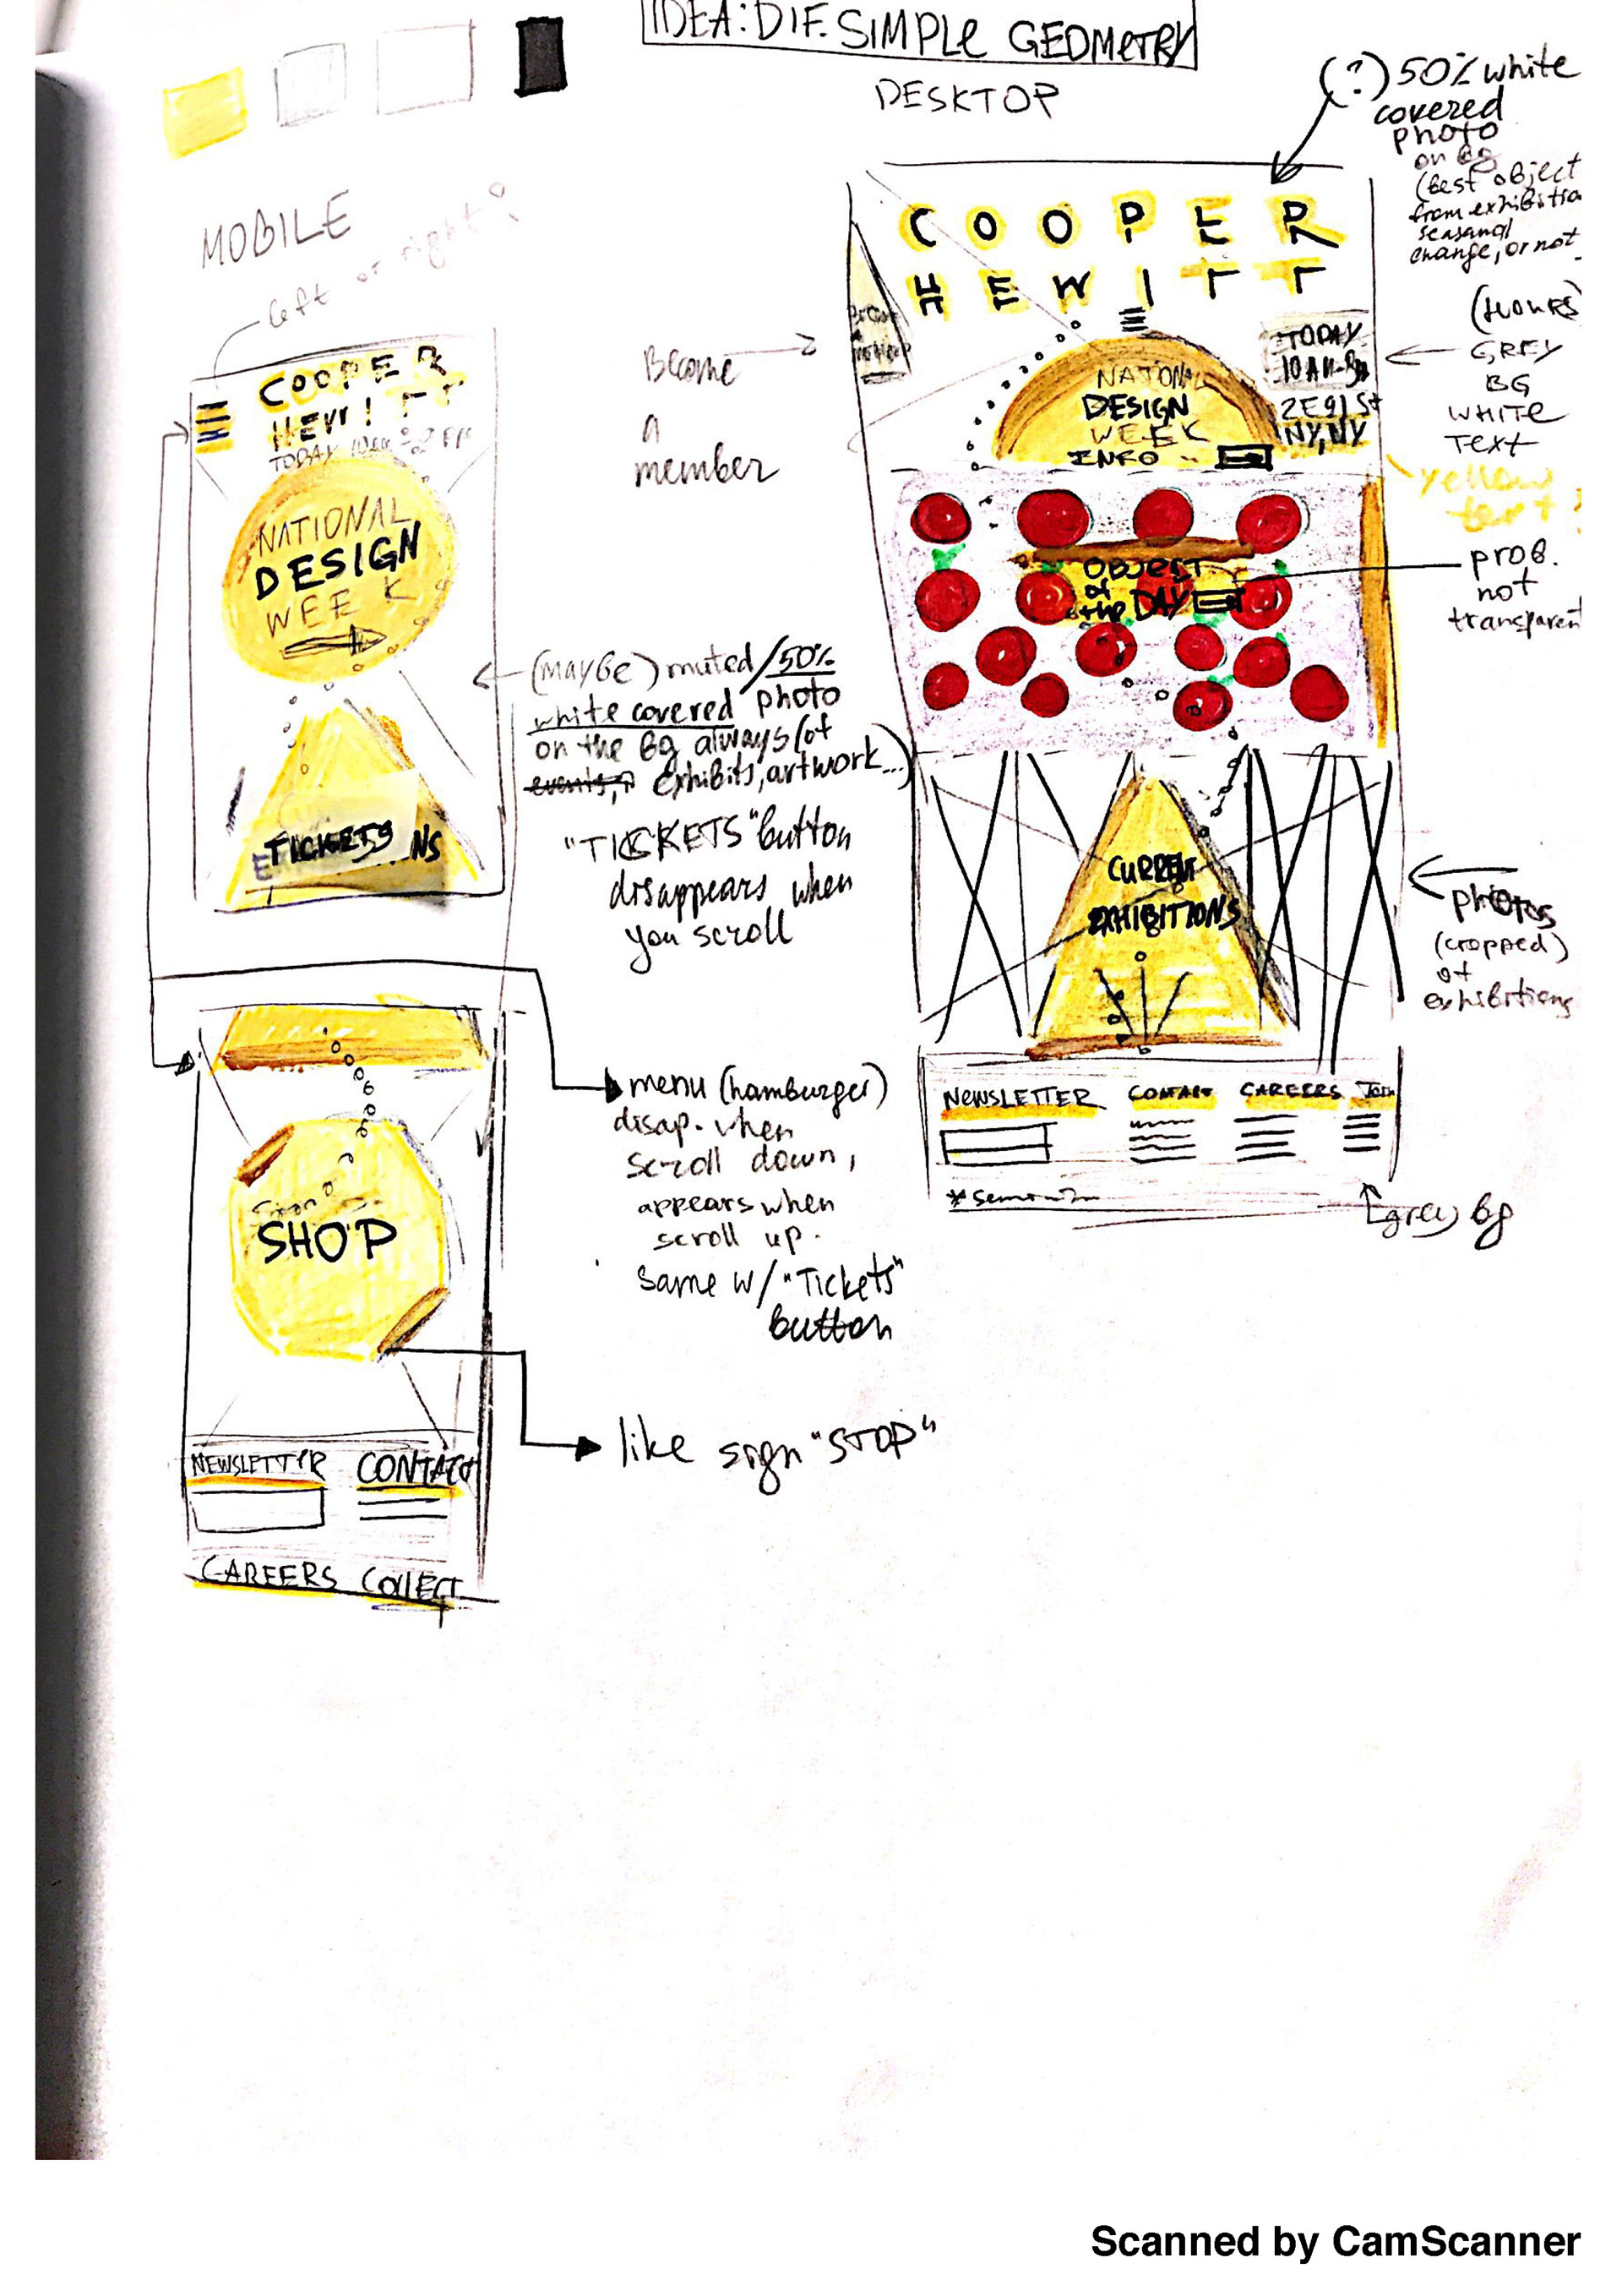 IDEA: DIF. SIMPLE GEOMETRY
DESKTOP
MOBILE
left or right?
(?) 50% white
covered
photo
on bg
(best object
from exhibitio
seasonal
change, or not
COOPER
HEWITT
Become
a
member
TODAY
10AM-
2E91 St
NY, NY
NATIONAL
DESIGN
WEEK
INFO
(HOURS)
GREY
BG
WHITE
TEXT
yellow
text?
OBJECT
of
the DAY
prob.
not
transparent
CURRENT
EXHIBITIONS
photos
(cropped)
of
exhibitions
NEWSLETTER CONTACT CAREERS Join
grey bg
COOPER
HEWITT
TODAY 10AM
NATIONAL
DESIGN
WEEK
TICKETS NS
(maybe) muted/50%
white covered photo
on the bg always (of
events, exhibits, artwork...)
"TICKETS" button
disappears when
you scroll
menu (hamburger)
disap. when
scroll down,
appears when
scroll up.
Same w/ "Tickets"
button
SHOP
like sign "STOP"
NEWSLETTER CONTACT
CAREERS COLLECT
Scanned by CamScanner